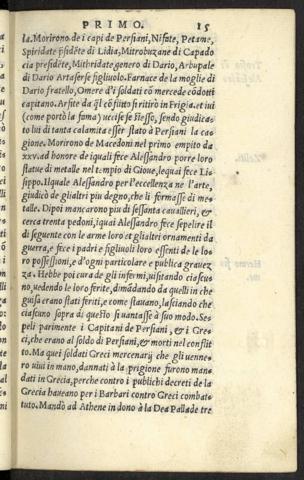 PRIMO. 15
la. Morirono de i capi de Persiani, Nifate, Petane,
Spiridate p̃sidẽte di Lidia, Mitrobuzane di Capado
cia presidẽte, Mithridate, genero di Dario, Arbupale
di Dario Artaserse figliuolo. Farnace de la moglie di
Dario fratello, Omere d'i soldati cõ mercede cõdotti
capitano. Arsite da q̃l cõflitto si ritirò in Frigia, et iui
(come portò la fama) uccise se stesso, sendo giudica-
to lui di tanta calamita esser stato à Persiani la ca-
gione. Morirono de Macedoni nel primo empito da
xxv. ad honore de iquali fece Alessandro porre loro
statue di metalle nel tempio di Gioue, lequai fece Li-
sippo. Ilquale Alessandro per l'eccellenza ne l'arte,
giudicò de gli altri piu degno, che li formasse di me-
talle. Dipoi mancarono piu di sessanta cauallieri, &
cerca trenta pedoni, iquai Alessandro fece sepelire il
dì seguente con le arme loro et gli altri ornamenti da
guerra, e fece i padri e figliuoli loro, essenti de le lo-
ro possessioni, e d'ogni particolare e publica grauez
za. Hebbe poi cura de gli infermi, uisitando ciascu-
no, uedendo le loro ferite, dimãdando da quelli in che
guisa erano stati feriti, e come stauano, lasciando che
ciascuno sopra di questo si uantasse à suo modo. Se-
pelì parimente i Capitani de Persiani, & i Gre-
ci, che erano al soldo di Persiani, & morti nel conflit
to. Ma quei soldati Greci mercenarij che gli uenne-
ro uiui in mano, dannati à la prigione furono man-
dati in Grecia, perche contro i publichi decreti de la
Grecia haueano per i Barbari contro Greci combat-
tuto. Mandò ad Athene in dono à la Dea Pallade tre